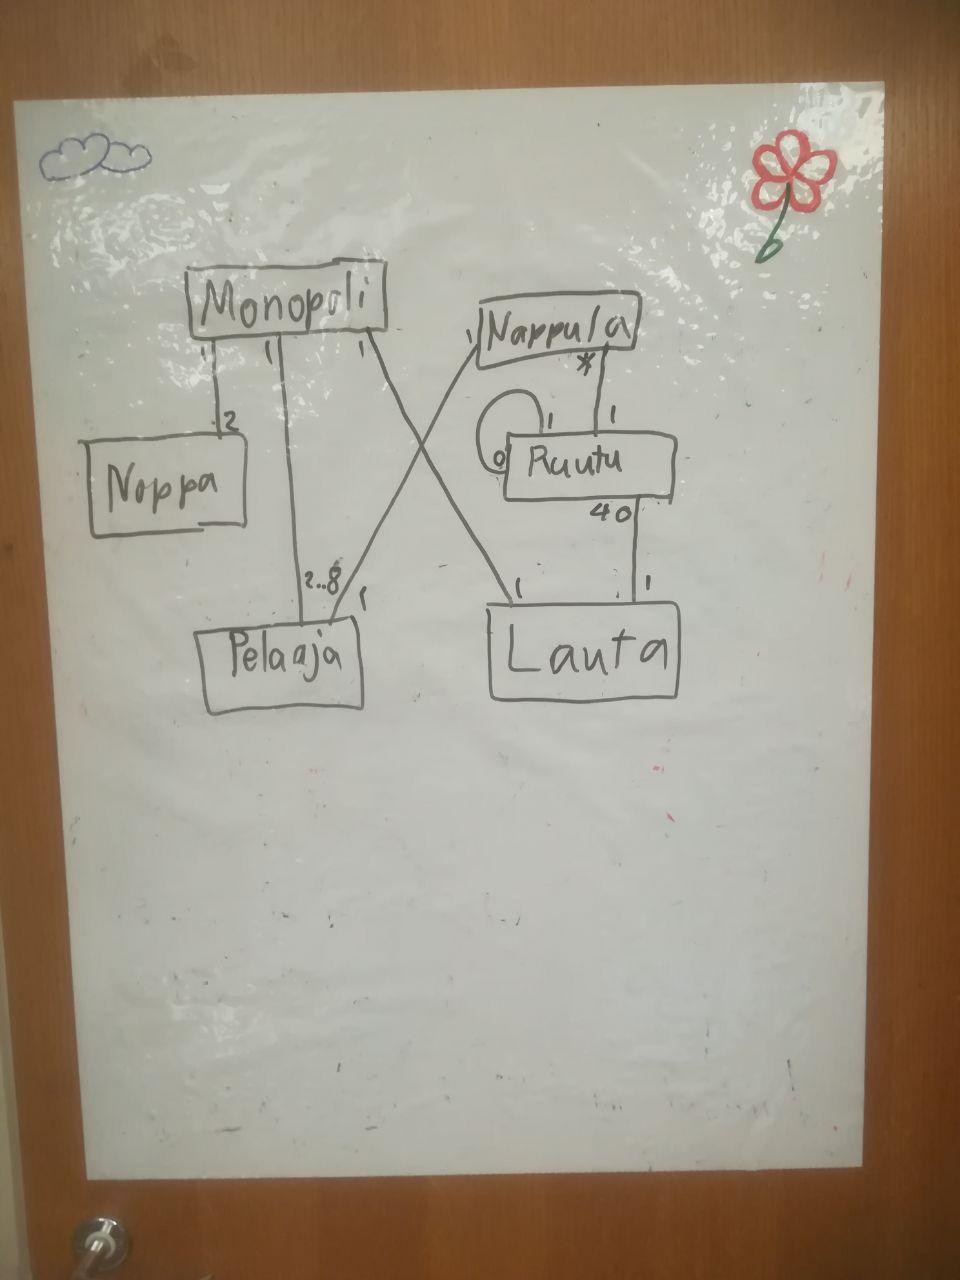 Monopoli
Nappula
1 1 1
1
*
2
1
1
Noppa
0
Ruutu
40
2..8
1
1
1
Pelaaja
Lauta